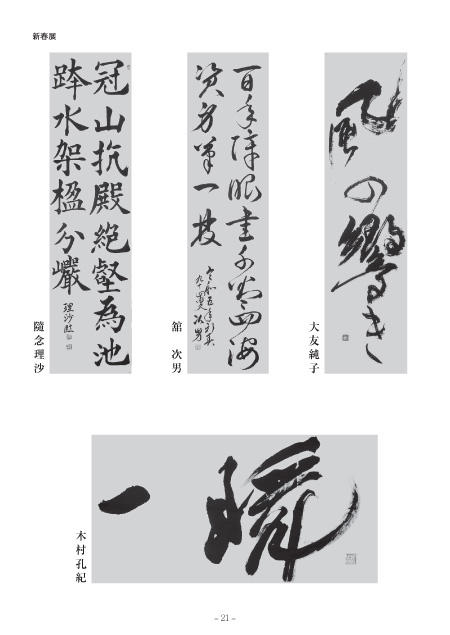 新春展
風の響き
大友純子
百年障眼書千巻四海
筆一枝
舘 次男
冠山抗殿絶壑為池
跨水架楹分巖
理沙臨
隨念理沙
一瞬
木村孔紀
- 21 -